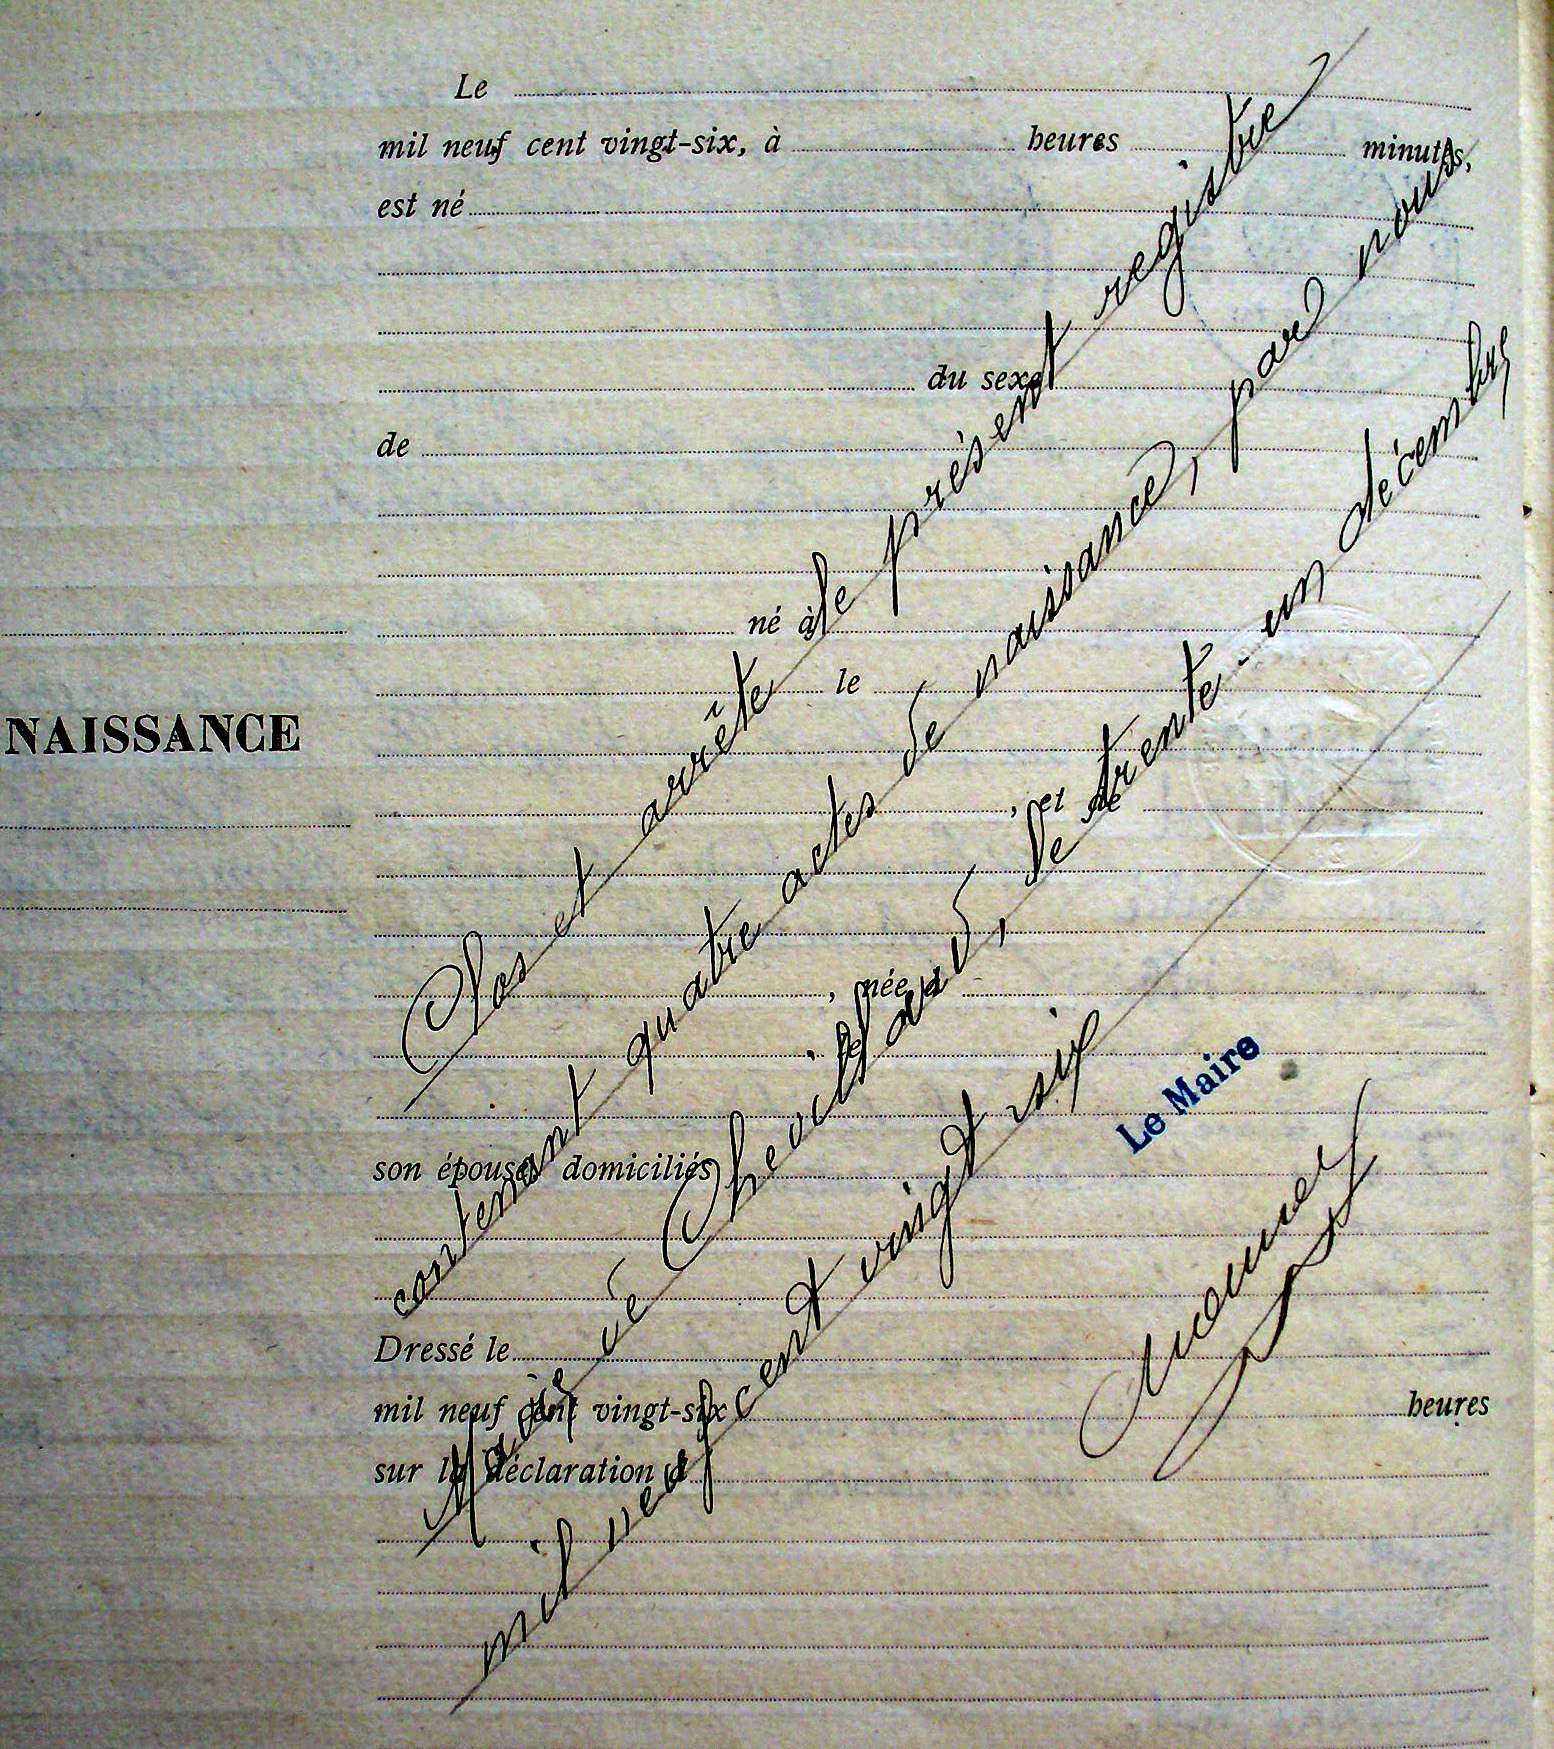 Le
mil neuf cent vingt-six, à heures minutes,
est né
du sexe
de
né à
le
NAISSANCE
, et de
, née à
le
son épouse, domiciliés
Dressé le
mil neuf cent vingt-six heures
sur la déclaration d
Clos et arrête le présent registre
contenant quatre actes de naissance, par nous
de Chevillard, le trente-un décembre
mil neuf cent vingt six
Le Maire